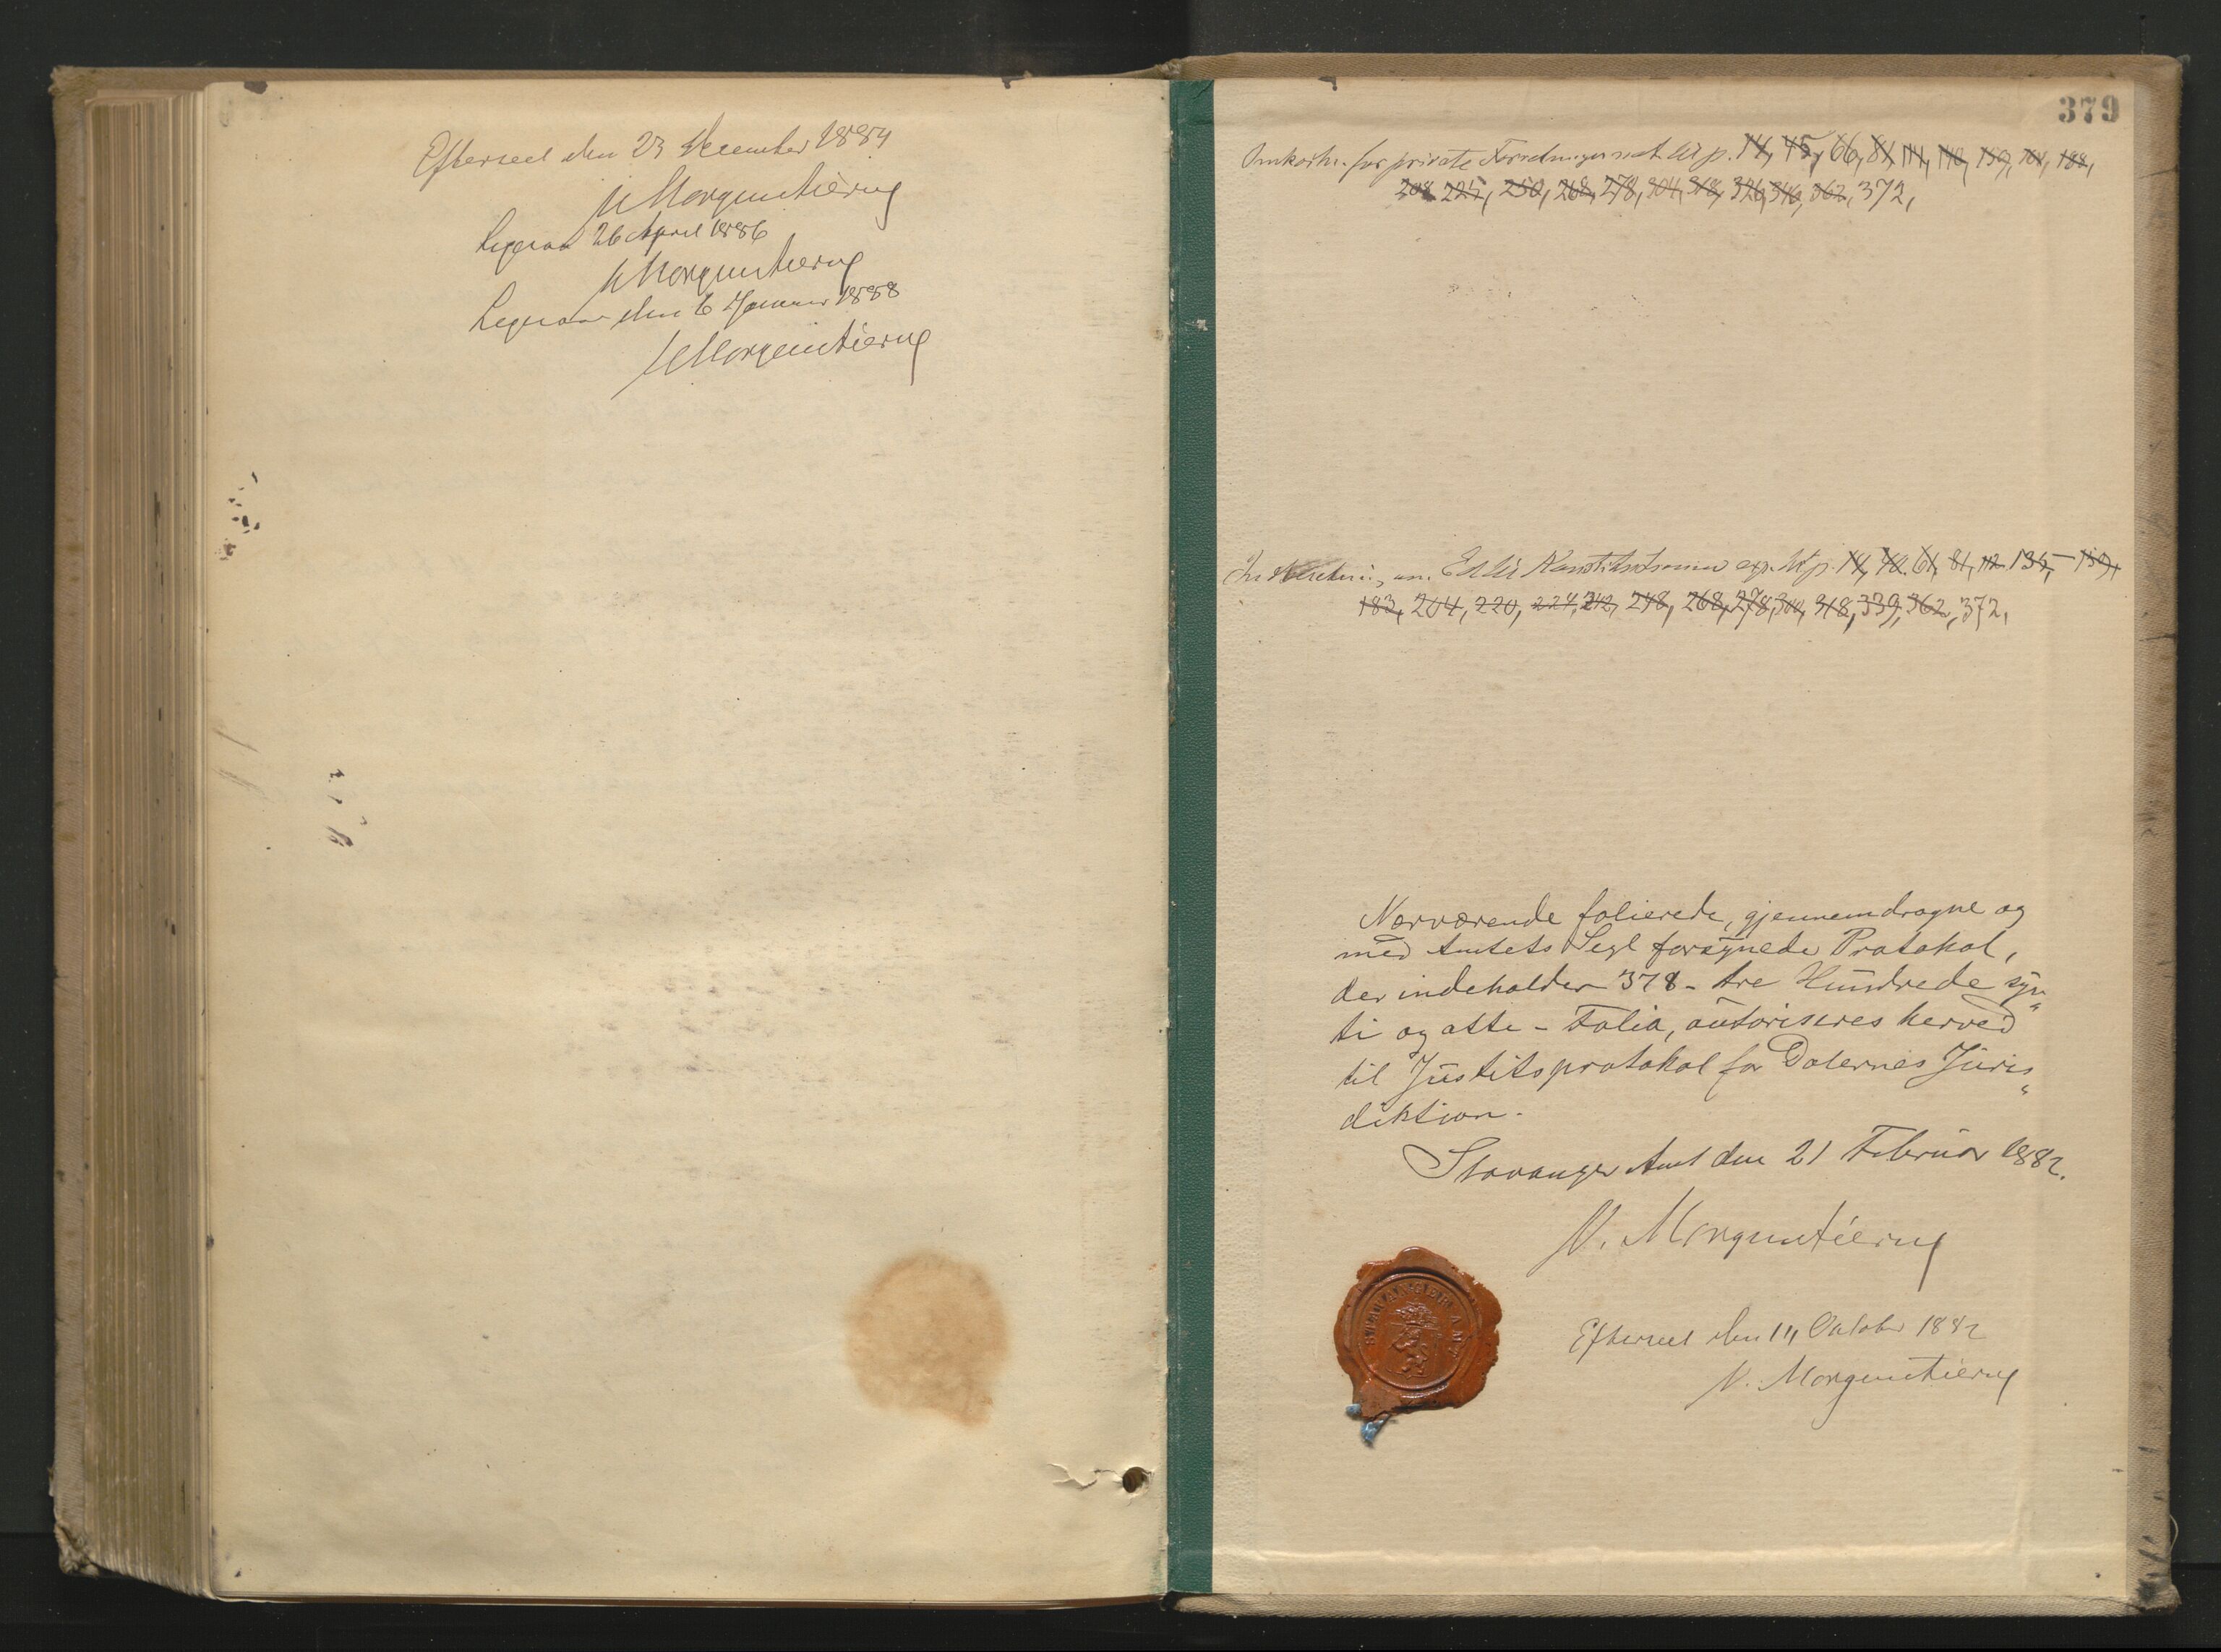 Efterseet den 23 December 1884
N Morgenstierne
Ligesaa 26 April 1886
N Morgenstierne
Ligesaa den 6 Januar 1888
N Morgenstierne
379
Omkostn. for private Forretninger not. til p. 14, 45, 66, 81, 111, 140, 159, 164, 188,
208, 225, 250, 268, 278, 304, 318, 326, 346, 362, 372,
Konstitutionen p. 14, 42, 61, 81, 112, 135, 159,
183, 204, 220, 224, 242, 248, 268, 278, 304, 318, 339, 362, 372,
Nærværende folierede, gjennemdragne og
med Amtets Segl forsynede Protokol,
der indeholder 378 - tre Hundrede syt„
ti og otte - Folia, autoriseres herved
til Justitsprotokol for Dalernes Juris„
diktion.
Stavanger Amt den 21 Februar 1882.
N. Morgenstierne
STAVANGER AMT
Efterseet den 14 Oktober 1882
N. Morgenstierne